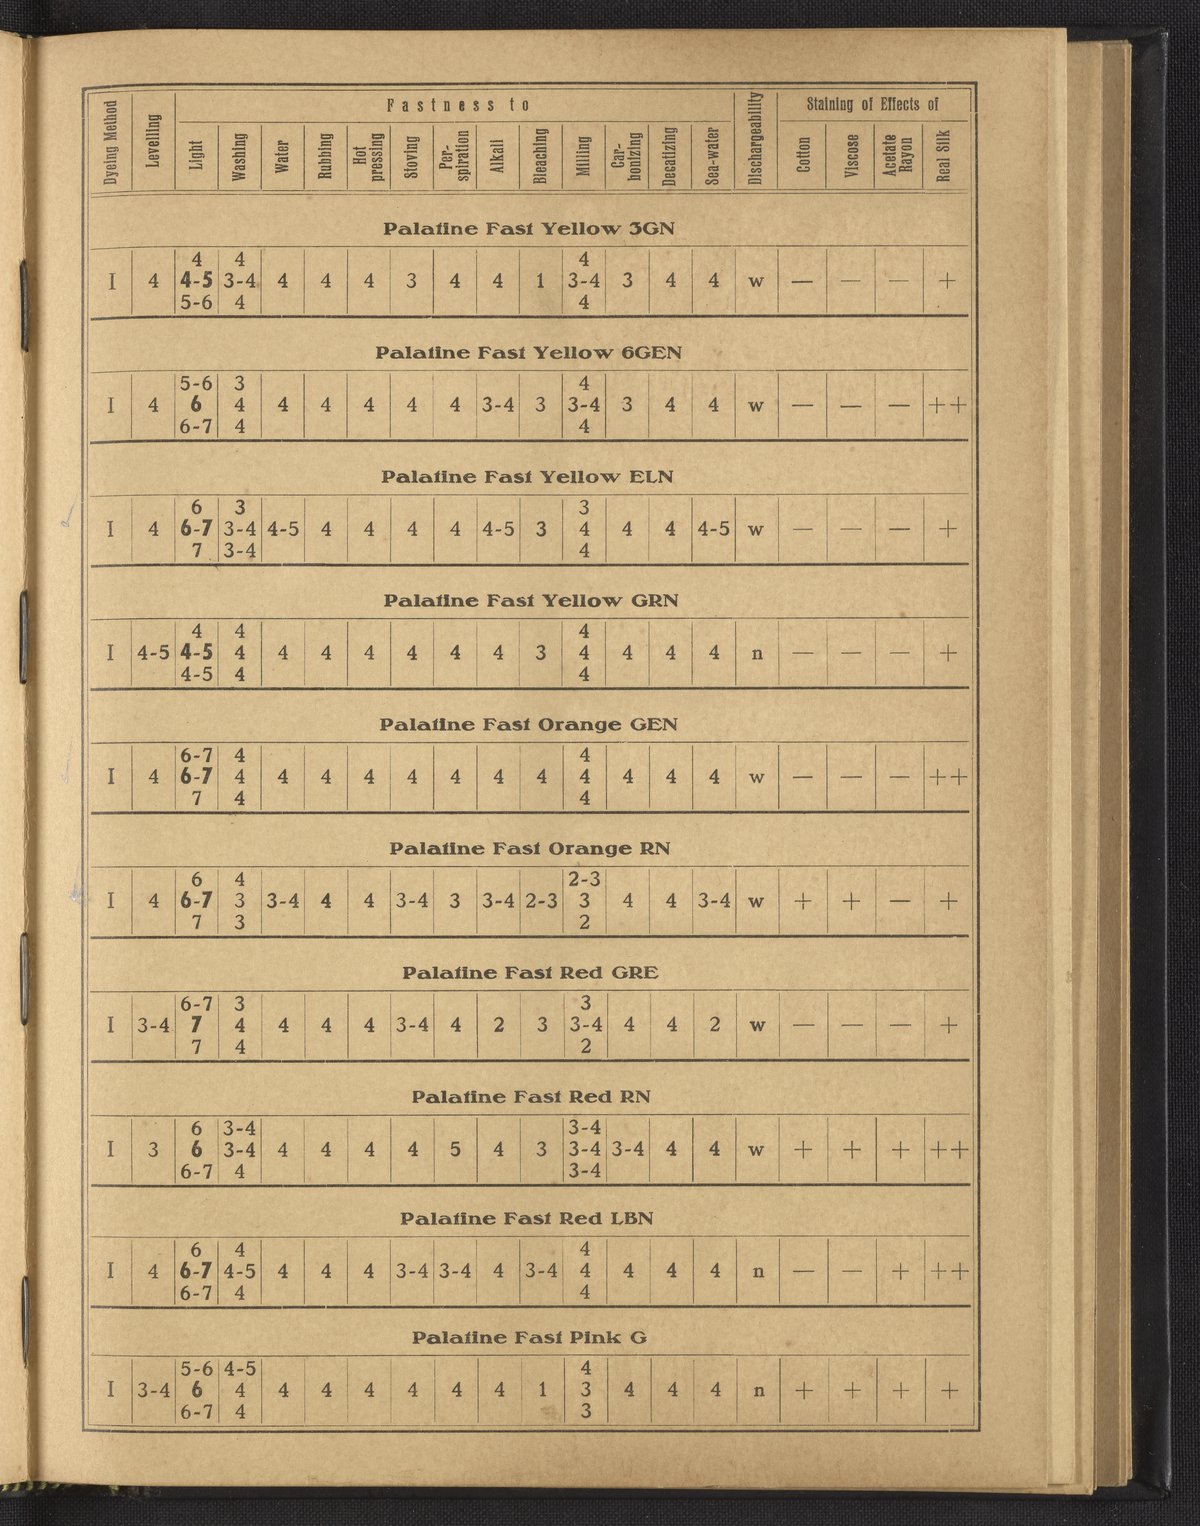 Dyeing Method Levelling Fastness to Dischargeability Staining of Effects of
Light Washing Water Rubbing Hot pressing Stoving Per-spiration Alkali Bleaching Milling Car-bonizing Decatizing Sea-water Cotton Viscose Acetate Rayon Real Silk
Palatine Fast Yellow 3GN
4 4 4
I 4 4-5 3-4 4 4 4 3 4 4 1 3-4 3 4 4 w — — — +
5-6 4 4
Palatine Fast Yellow 6GEN
5-6 3 4
I 4 6 4 4 4 4 4 4 3-4 3 3-4 3 4 4 w — — — ++
6-7 4 4
Palatine Fast Yellow ELN
6 3 3
I 4 6-7 3-4 4-5 4 4 4 4 4-5 3 4 4 4 4-5 w — — — +
7 3-4 4
Palatine Fast Yellow GRN
4 4 4
I 4-5 4-5 4 4 4 4 4 4 4 3 4 4 4 4 n — — — +
4-5 4 4
Palatine Fast Orange GEN
6-7 4 4
I 4 6-7 4 4 4 4 4 4 4 4 4 4 4 4 w — — — ++
7 4 4
Palatine Fast Orange RN
6 4 2-3
I 4 6-7 3 3-4 4 4 3-4 3 3-4 2-3 3 4 4 3-4 w + + — +
7 3 2
Palatine Fast Red GRE
6-7 3 3
I 3-4 7 4 4 4 4 3-4 4 2 3 3-4 4 4 2 w — — — +
7 4 2
Palatine Fast Red RN
6 3-4 3-4
I 3 6 3-4 4 4 4 4 5 4 3 3-4 3-4 4 4 w + + + ++
6-7 4 3-4
Palatine Fast Red LBN
6 4 4
I 4 6-7 4-5 4 4 4 3-4 3-4 4 3-4 4 4 4 4 n — — + ++
6-7 4 4
Palatine Fast Pink G
5-6 4-5 4
I 3-4 6 4 4 4 4 4 4 4 1 3 4 4 4 n + + + +
6-7 4 3